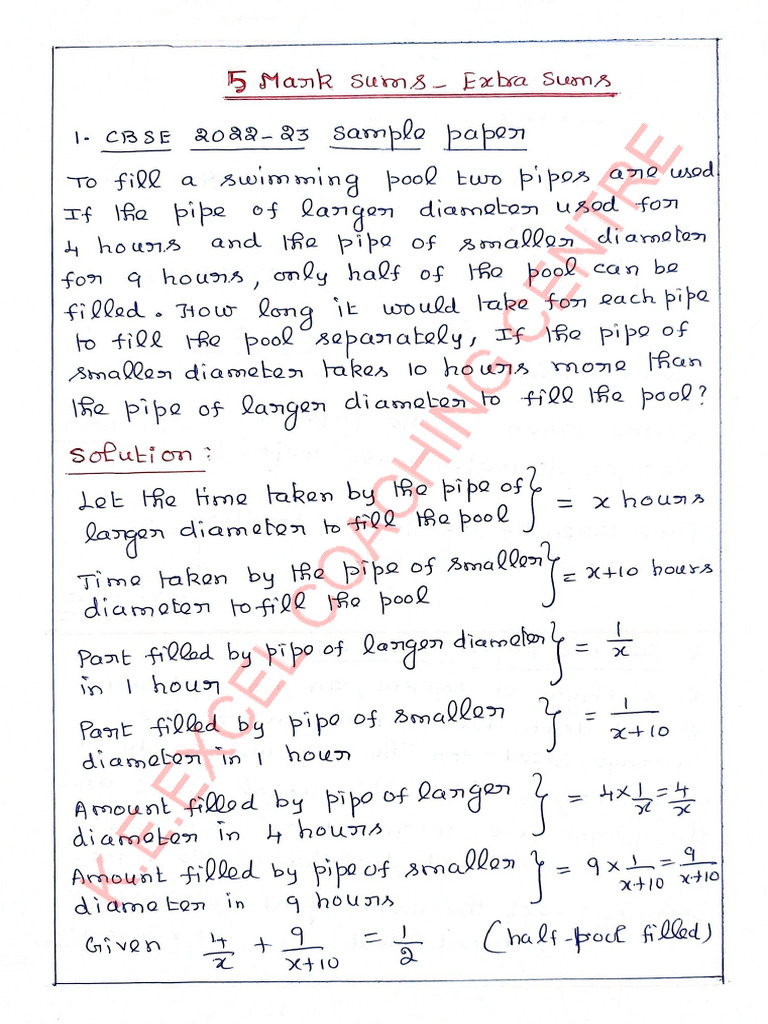 5 Mark Sums - Extra Sums
1. CBSE 2022-23 Sample paper
To fill a swimming pool two pipes are used.
If the pipe of larger diameter used for
4 hours and the pipe of smaller diameter
for 9 hours, only half of the pool can be
filled. How long it would take for each pipe
to fill the pool separately, If the pipe of
smaller diameter takes 10 hours more than
the pipe of larger diameter to fill the pool?
Solution:
Let the time taken by the pipe of
larger diameter to fill the pool } = x hours
Time taken by the pipe of smaller
diameter to fill the pool } = x+10 hours
Part filled by pipe of larger diameter
in 1 hour } = 1/x
Part filled by pipe of smaller
diameter in 1 hour } = 1/(x+10)
Amount filled by pipe of larger
diameter in 4 hours } = 4 × 1/x = 4/x
Amount filled by pipe of smaller
diameter in 9 hours } = 9 × 1/(x+10) = 9/(x+10)
Given 4/x + 9/(x+10) = 1/2 (half-pool filled)
K.E.EXCEL COACHING CENTRE